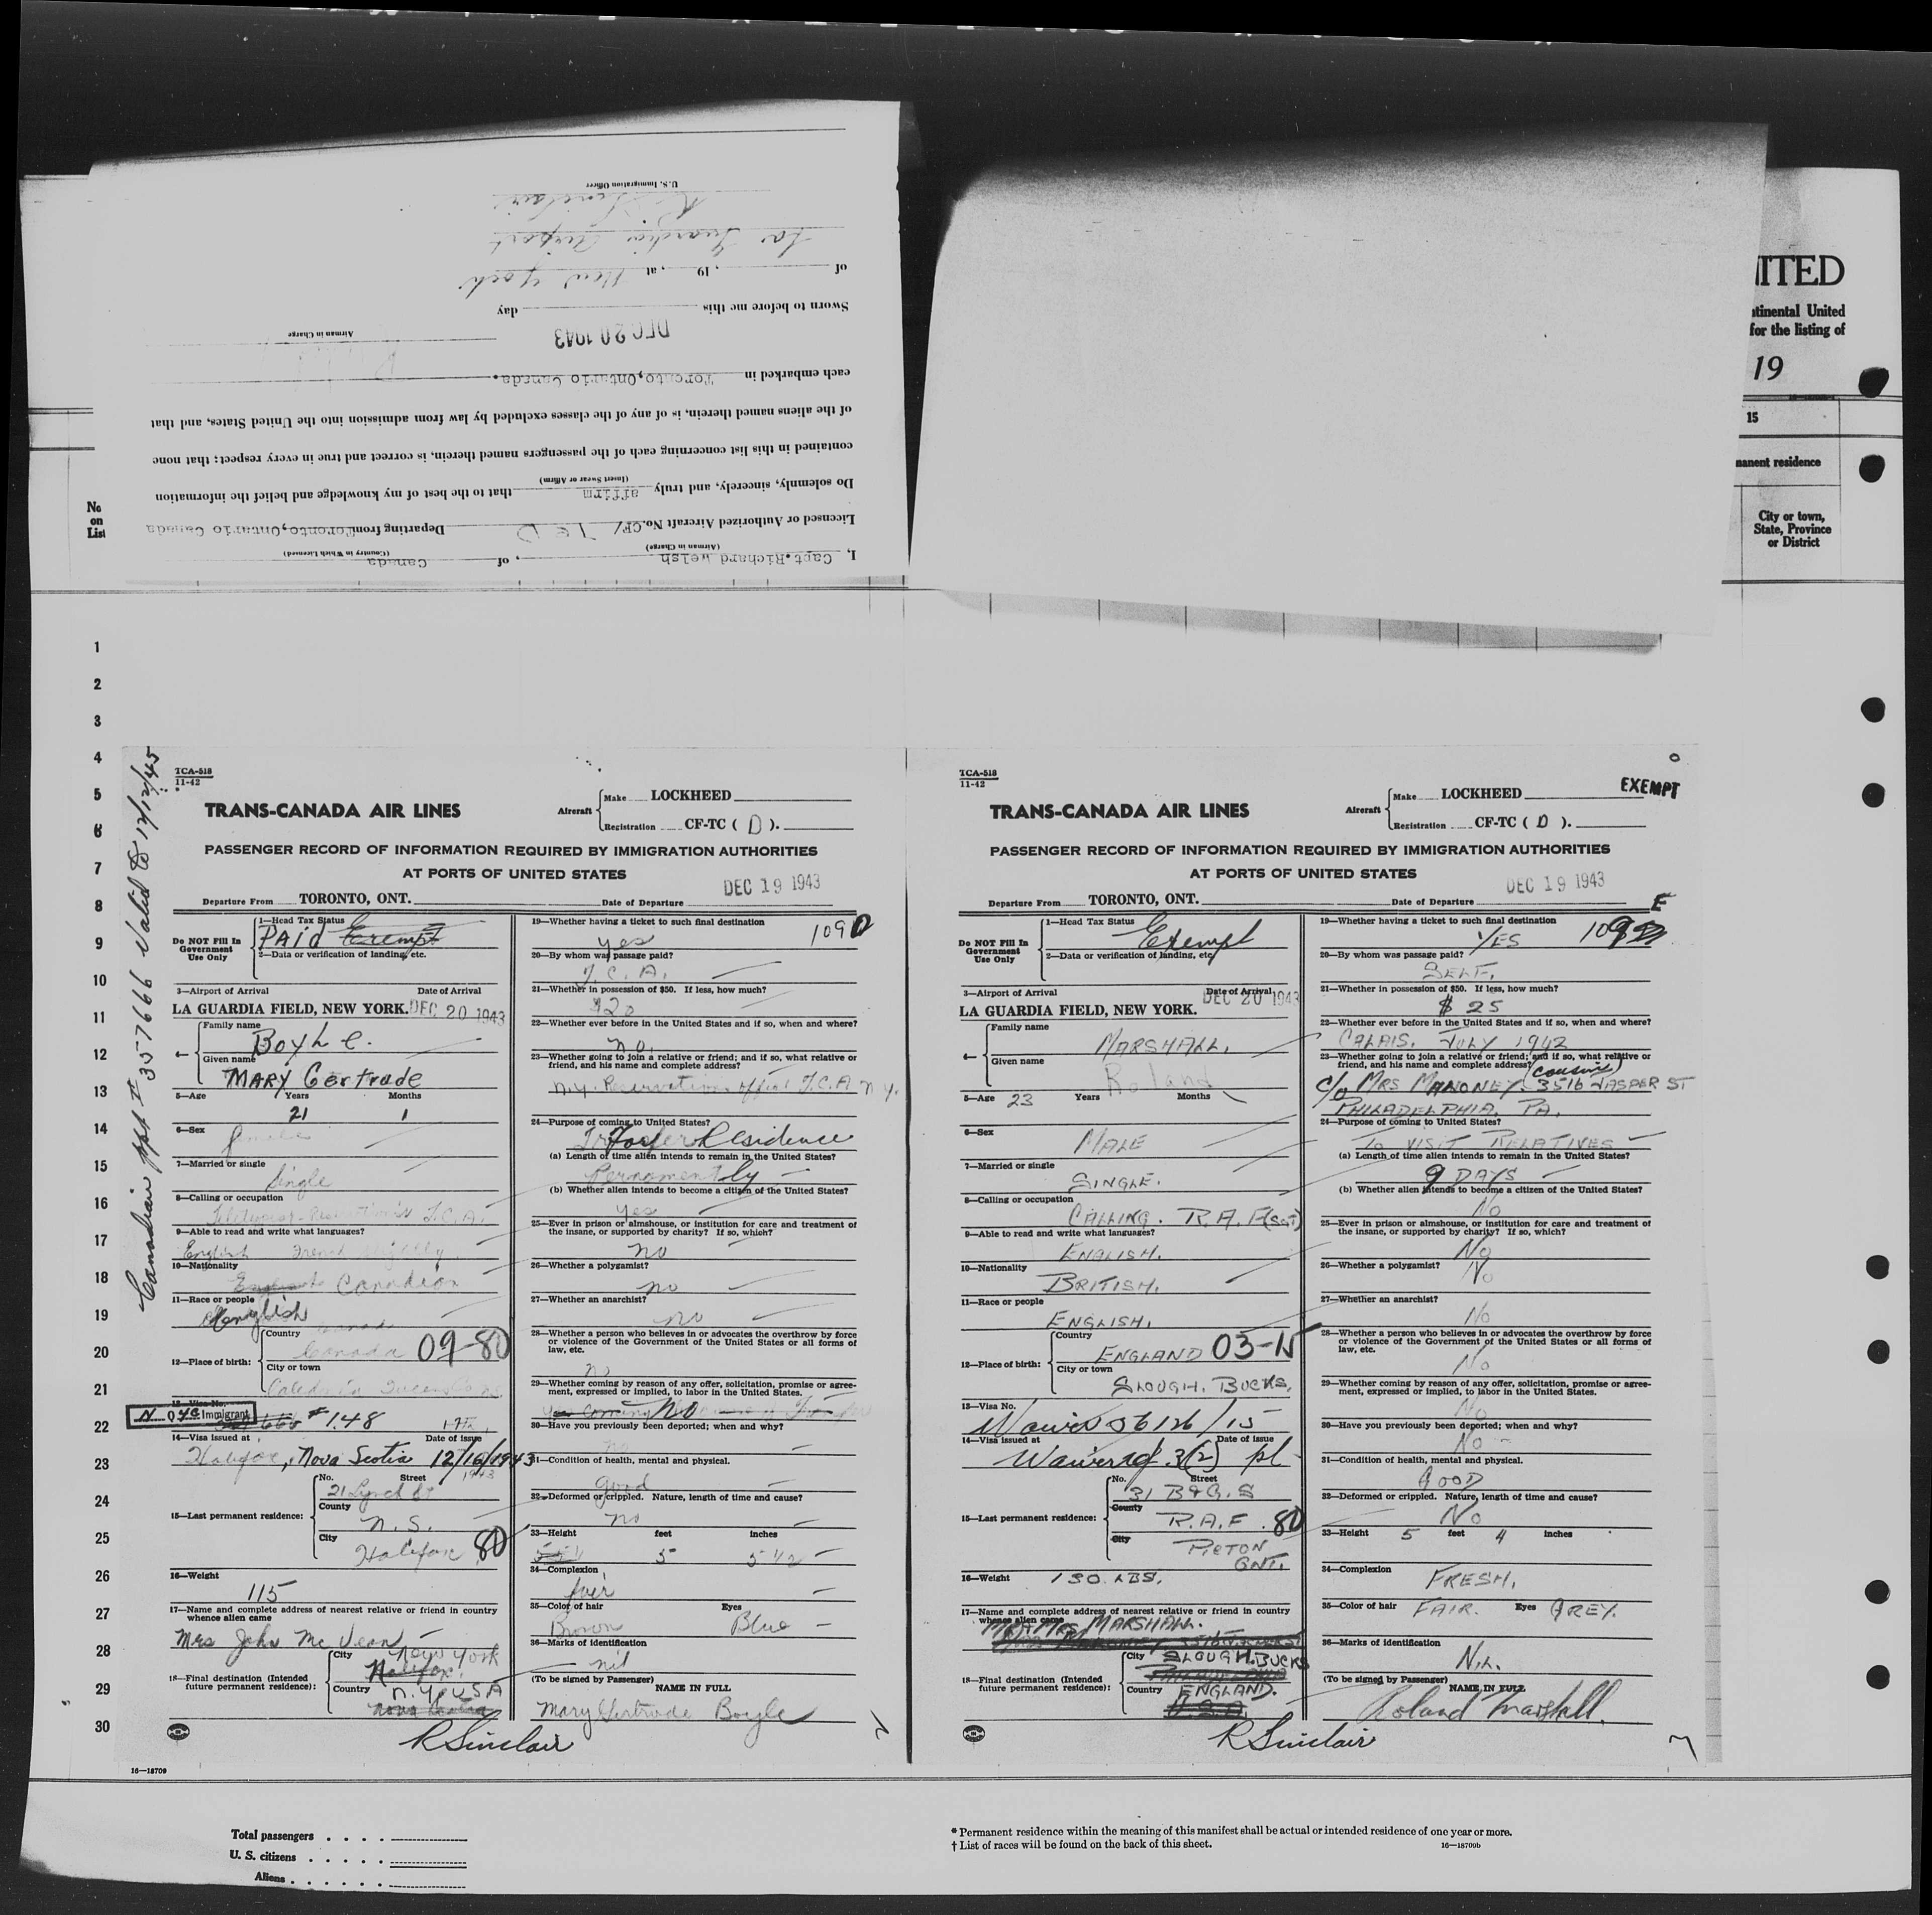 U.S. Immigration Officer
R Sinclair
La Guardia Airport
of , 19 , at New York
Sworn to before me this day
DEC 20 1943
Airman in Charge
each embarked in Toronto, Ontario Canada.
of the aliens named therein, is of any of the classes excluded by law from admission into the United States, and that
contained in this list concerning each of the passengers named therein, is correct and true in every respect; that none
(Insert Swear or Affirm)
Do solemnly, sincerely, and truly affirm that to the best of my knowledge and belief the information
Licensed or Authorized Aircraft No. CF/ TCD Departing from Toronto, Ontario Canada
(Airman in Charge) (Country in Which Licensed)
I, Capt. Richard Welsh , of Canada
ITED
tinental United
for the listing of
19
15
manent residence
City or town,
State, Province
or District
No
on
List
1
2
3
4
5
6
7
8
9
10
11
12
13
14
15
16
17
18
19
20
21
22
23
24
25
26
27
28
29
30
Canadian ppt # 357666 Valid to 12/12/45
TCA-518
11-42
TRANS-CANADA AIR LINES
Aircraft
Make LOCKHEED
Registration CF-TC ( D ).
PASSENGER RECORD OF INFORMATION REQUIRED BY IMMIGRATION AUTHORITIES
AT PORTS OF UNITED STATES
DEC 19 1943
Departure From TORONTO, ONT. Date of Departure
Do NOT Fill In
Government
Use Only
1—Head Tax Status
PAid Exempt
2—Data or verification of landing, etc.
3—Airport of Arrival Date of Arrival
LA GUARDIA FIELD, NEW YORK. DEC 20 1943
4—
Family name
Boyle.
Given name
MARY Gertrude
5—Age Years Months
21 1
6—Sex
female
7—Married or single
Single
8—Calling or occupation
T.C.A.
9—Able to read and write what languages?
English French slightly
10—Nationality
Canadian
11—Race or people
English
12—Place of birth:
Country
Canada 09-80
City or town
Caledonia Queens Co
13—Visa No.
N 04C Immigrant #148
14—Visa issued at Date of issue
Halifax, Nova Scotia 12/16/1943
15—Last permanent residence:
No. Street
21 Lynch St
County
N.S.
City
Halifax 80
16—Weight
115
17—Name and complete address of nearest relative or friend in country
whence alien came
Mrs John McVean
18—Final destination (Intended
future permanent residence):
City New York
Halifax
Country N.Y. USA
Nova Scotia
R Sinclair
16—18709
19—Whether having a ticket to such final destination
yes 1090
20—By whom was passage paid?
T.C.A.
21—Whether in possession of $50. If less, how much?
$20
22—Whether ever before in the United States and if so, when and where?
no.
23—Whether going to join a relative or friend; and if so, what relative or
friend, and his name and complete address?
N.Y. Reservations office T.C.A N.Y.
24—Purpose of coming to United States?
Residence
(a) Length of time alien intends to remain in the United States?
Permanently
(b) Whether alien intends to become a citizen of the United States?
yes
25—Ever in prison or almshouse, or institution for care and treatment of
the insane, or supported by charity? If so, which?
no
26—Whether a polygamist?
no
27—Whether an anarchist?
no
28—Whether a person who believes in or advocates the overthrow by force
or violence of the Government of the United States or all forms of
law, etc.
no
29—Whether coming by reason of any offer, solicitation, promise or agree-
ment, expressed or implied, to labor in the United States.
No
30—Have you previously been deported; when and why?
no
31—Condition of health, mental and physical.
Good
32—Deformed or crippled. Nature, length of time and cause?
no
33—Height feet inches
5 5 1/2
34—Complexion
fair
35—Color of hair Eyes
Brown Blue
36—Marks of identification
nil
(To be signed by Passenger)
NAME IN FULL
Mary Gertrude Boyle
TCA-518
11-42
TRANS-CANADA AIR LINES
Aircraft
Make LOCKHEED
Registration CF-TC ( D ).
EXEMPT
PASSENGER RECORD OF INFORMATION REQUIRED BY IMMIGRATION AUTHORITIES
AT PORTS OF UNITED STATES
DEC 19 1943
Departure From TORONTO, ONT. Date of Departure
E
Do NOT Fill In
Government
Use Only
1—Head Tax Status
Exempt
2—Data or verification of landing, etc.
3—Airport of Arrival Date of Arrival
LA GUARDIA FIELD, NEW YORK. DEC 20 1943
4—
Family name
MARSHALL.
Given name
Roland
5—Age 23 Years Months
6—Sex
MALE
7—Married or single
SINGLE.
8—Calling or occupation
CALLING. R.A.F (SGT)
9—Able to read and write what languages?
ENGLISH.
10—Nationality
BRITISH.
11—Race or people
ENGLISH.
12—Place of birth:
Country
ENGLAND 03-15
City or town
SLOUGH. BUCKS.
13—Visa No.
14—Visa issued at Date of issue
15—Last permanent residence:
No. Street
31 B&G.S
County
R.A.F. 80
City
PICTON
ONT.
16—Weight 130 LBS.
17—Name and complete address of nearest relative or friend in country
whence alien came
MR & MRS MARSHALL.
18—Final destination (Intended
future permanent residence):
City SLOUGH. BUCKS
Country ENGLAND.
U.S.A.
R Sinclair
19—Whether having a ticket to such final destination
YES
20—By whom was passage paid?
SELF.
21—Whether in possession of $50. If less, how much?
$ 25
22—Whether ever before in the United States and if so, when and where?
CALAIS. JULY 1942
23—Whether going to join a relative or friend; and if so, what relative or
friend, and his name and complete address? (cousins)
C/o MRS MAHONEY. 3516 JASPER ST
PHILADELPHIA. PA.
24—Purpose of coming to United States?
TO VISIT RELATIVES
(a) Length of time alien intends to remain in the United States?
9 DAYS
(b) Whether alien intends to become a citizen of the United States?
No
25—Ever in prison or almshouse, or institution for care and treatment of
the insane, or supported by charity? If so, which?
No
26—Whether a polygamist?
No
27—Whether an anarchist?
No
28—Whether a person who believes in or advocates the overthrow by force
or violence of the Government of the United States or all forms of
law, etc.
No
29—Whether coming by reason of any offer, solicitation, promise or agree-
ment, expressed or implied, to labor in the United States.
No
30—Have you previously been deported; when and why?
No
31—Condition of health, mental and physical.
GOOD
32—Deformed or crippled. Nature, length of time and cause?
No
33—Height 5 feet 4 inches
34—Complexion
FRESH.
35—Color of hair FAIR. Eyes GREY.
36—Marks of identification
NIL.
(To be signed by Passenger)
NAME IN FULL
Roland Marshall.
Total passengers . . . .
U. S. citizens . . . . .
Aliens . . . . . .
* Permanent residence within the meaning of this manifest shall be actual or intended residence of one year or more.
† List of races will be found on the back of this sheet. 16—18709b